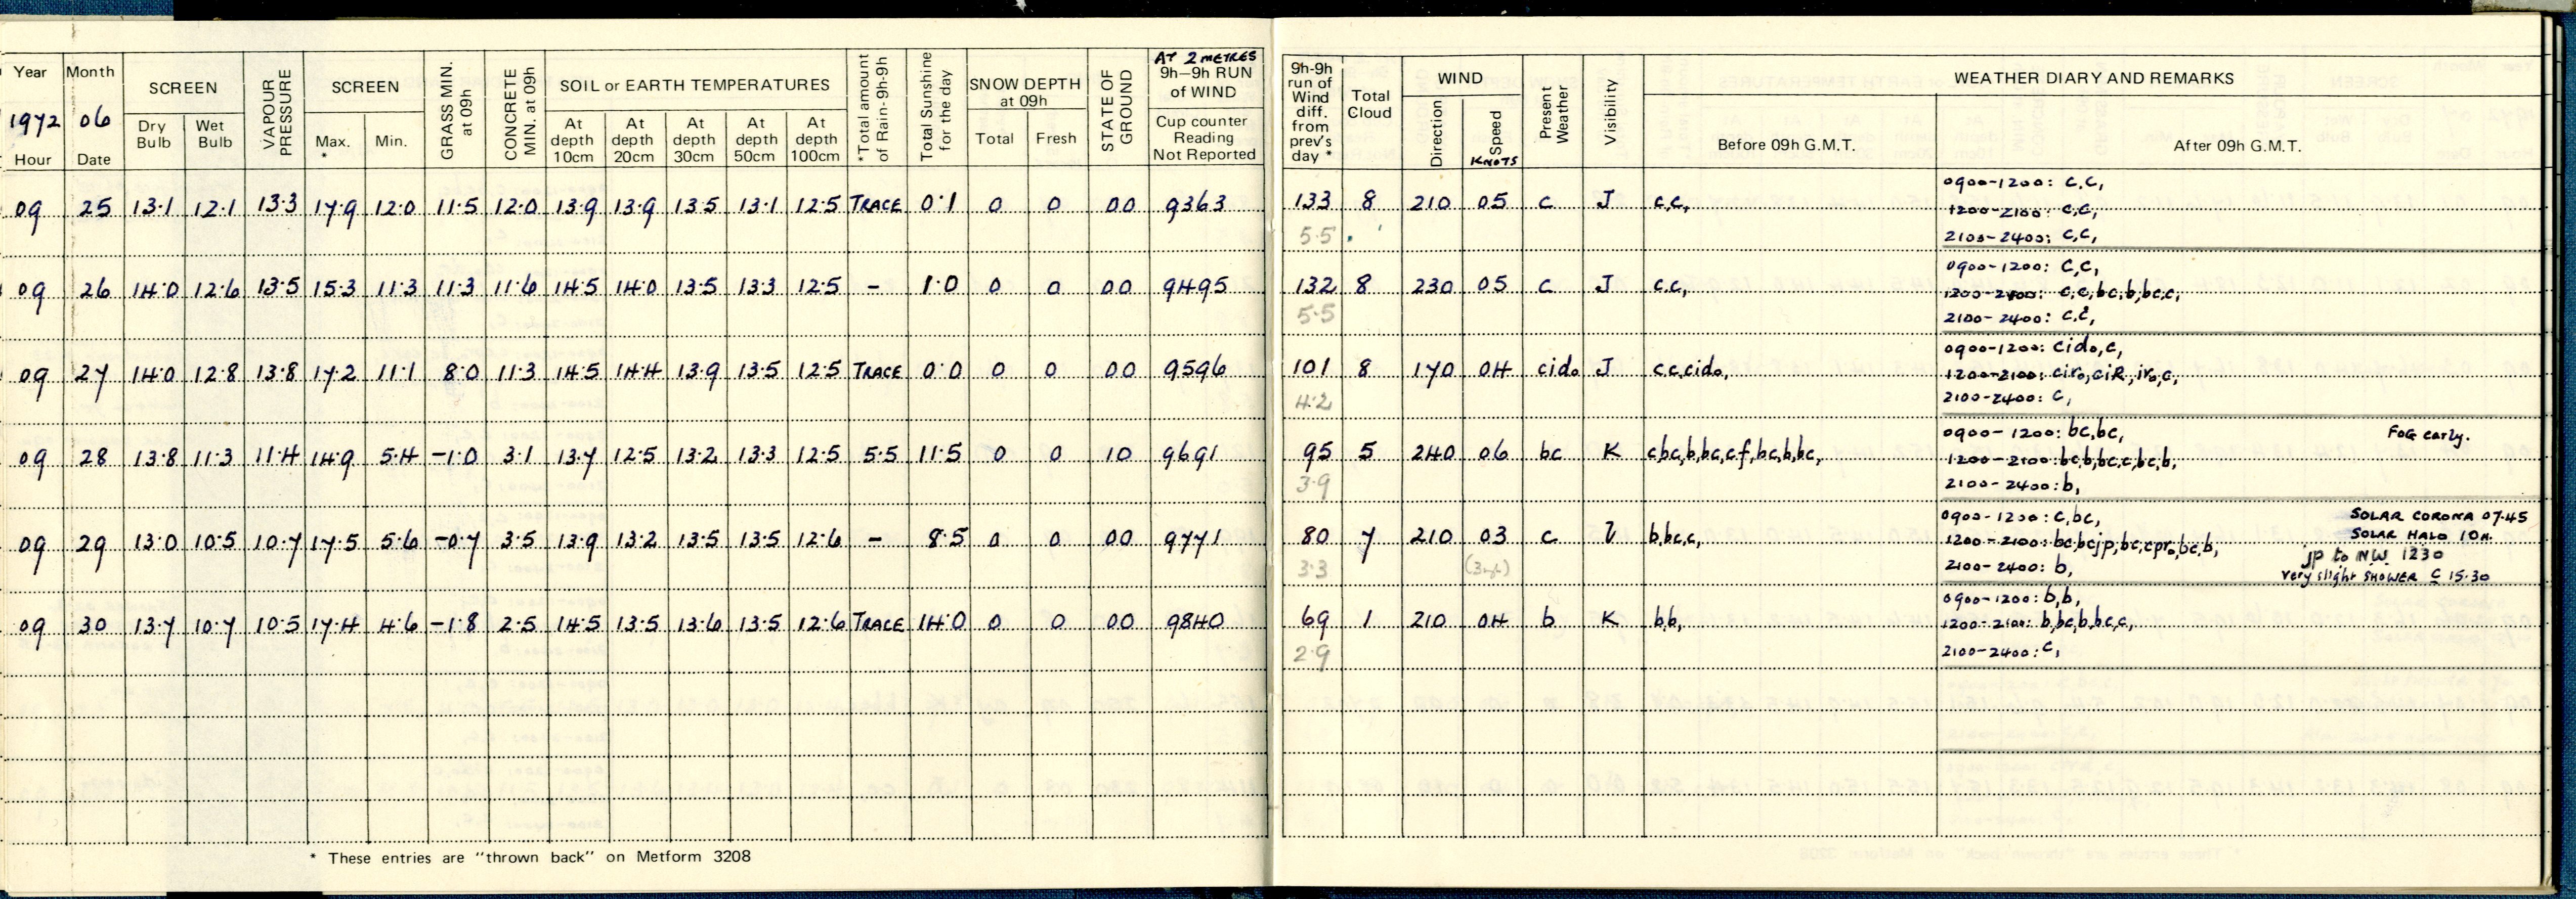 Year Month SCREEN VAPOUR PRESSURE SCREEN GRASS MIN. at 09h CONCRETE MIN. at 09h SOIL or EARTH TEMPERATURES *Total amount of Rain-9h-9h Total Sunshine for the day SNOW DEPTH at 09h STATE OF GROUND AT 2 METRES 9h-9h RUN of WIND
1972 06
Hour Date Dry Bulb Wet Bulb Max. * Min. At depth 10cm At depth 20cm At depth 30cm At depth 50cm At depth 100cm Total Fresh Cup counter Reading Not Reported
09 25 13·1 12·1 13·3 17·9 12·0 11·5 12·0 13·9 13·9 13·5 13·1 12·5 TRACE 0·1 0 0 00 9363
09 26 14·0 12·6 13·5 15·3 11·3 11·3 11·6 14·5 14·0 13·5 13·3 12·5 – 1·0 0 0 00 9495
09 27 14·0 12·8 13·8 17·2 11·1 8·0 11·3 14·5 14·4 13·9 13·5 12·5 TRACE 0·0 0 0 00 9596
09 28 13·8 11·3 11·4 14·9 5·4 -1·0 3·1 13·7 12·5 13·2 13·3 12·5 5·5 11·5 0 0 10 9691
09 29 13·0 10·5 10·7 17·5 5·6 -0·7 3·5 13·9 13·2 13·5 13·5 12·6 – 8·5 0 0 00 9771
09 30 13·7 10·7 10·5 17·4 4·6 -1·8 2·5 14·5 13·5 13·6 13·5 12·6 TRACE 14·0 0 0 00 9840
* These entries are "thrown back" on Metform 3208
9h-9h run of Wind diff. from prev's day * Total Cloud WIND Present Weather Visibility WEATHER DIARY AND REMARKS
Direction Speed KNOTS Before 09h G.M.T. After 09h G.M.T.
0900-1200: c,c,
133 8 210 05 c J c,c,
1200-2100: c,c,
5·5
2100-2400: c,c,
0900-1200: c,c,
132 8 230 05 c J c,c,
1200-2100: c,c,bc,b,bc,c,
5·5
2100-2400: c,c,
0900-1200: cido,c,
101 8 170 04 cido J c,c,cido,
1200-2100: ciro,ciR,iro,c,
4·2
2100-2400: c,
0900-1200: bc,bc, FOG early.
95 5 240 06 bc K c,bc,b,bc,cf,bc,b,bc,
1200-2100: bc,b,bc,c,bc,b,
3·9
2100-2400: b,
0900-1200: c,bc, SOLAR CORONA 07.45
SOLAR HALO 10h.
80 7 210 03 c b,bc,c,
1200-2100: bc,bcjp,bc,cpro,bc,b, jp to NW 1230
3·3
2100-2400: b, very slight SHOWER C 15.30
0900-1200: b,b,
69 1 210 04 b K b,b,
1200-2100: b,bc,b,bc,c,
2·9
2100-2400: c,